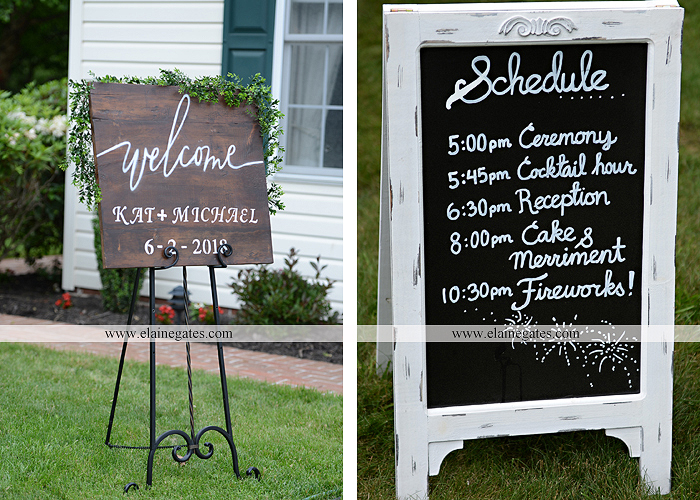 welcome
KAT + MICHAEL
6 - 2 - 2018
Schedule
5:00pm Ceremony
5:45pm Cocktail hour
6:30pm Reception
8:00pm Cake &
Merriment
10:30pm Fireworks!
www.elainegates.com
www.elainegates.com